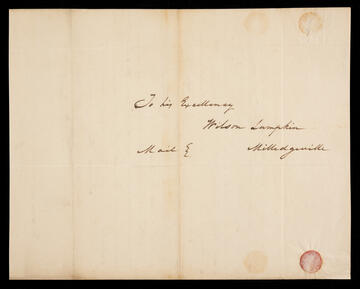 To his Excellency
Wilson Lumpkin
Mail Milledgeville